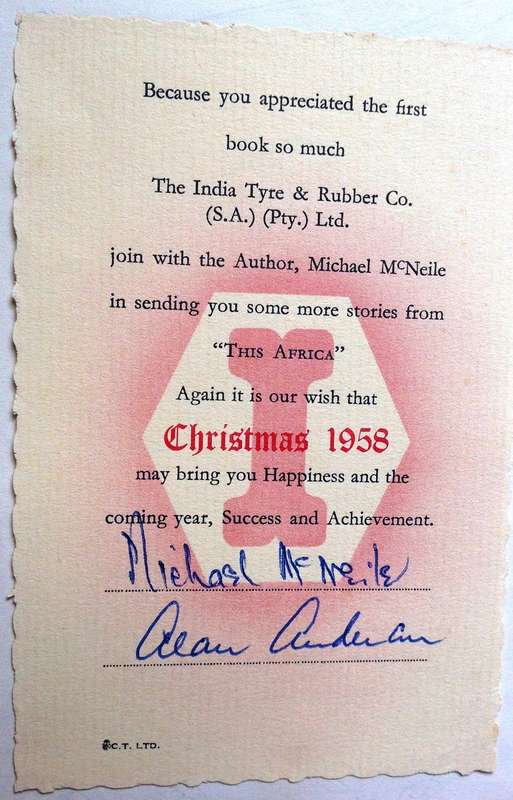 Because you appreciated the first
book so much
The India Tyre & Rubber Co.
(S.A.) (Pty.) Ltd.
join with the Author, Michael McNeile
in sending you some more stories from
“THIS AFRICA”
Again it is our wish that
Christmas 1958
may bring you Happiness and the
coming year, Success and Achievement.
Michael McNeile
Alan Anderson
C.T. LTD.